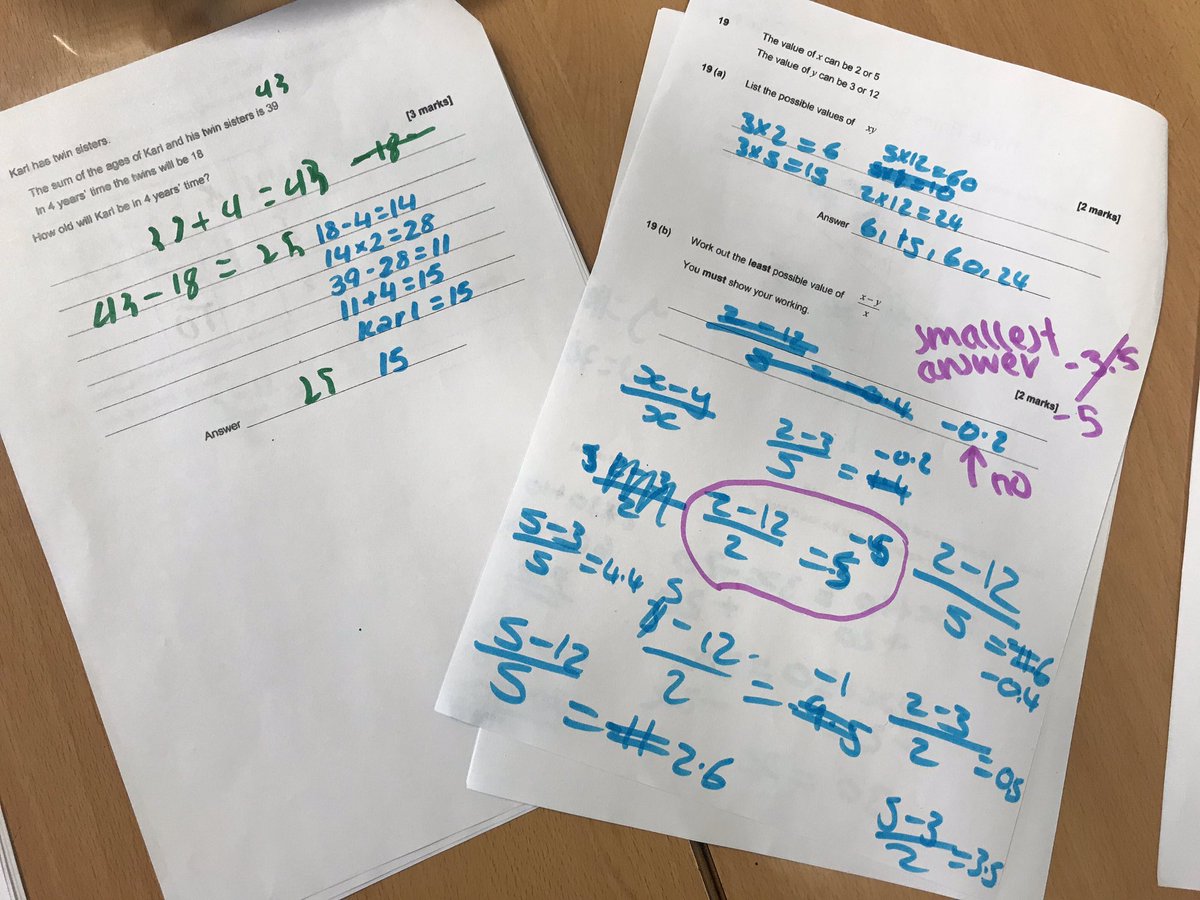 43
Karl has twin sisters.
The sum of the ages of Karl and his twin sisters is 39
In 4 years' time the twins will be 18
How old will Karl be in 4 years' time?
[3 marks]
+ 4 = 43 18
43 - 18 = 25
18 - 4 = 14
14 × 2 = 28
39 - 28 = 11
11 + 4 = 15
Karl = 15
Answer 25 15
19
The value of x can be 2 or 5
The value of y can be 3 or 12
19 (a)
List the possible values of xy
3×2 = 6
3×5 = 15
5×12=60
2×12=24
[2 marks]
Answer 6, 15, 60, 24
19 (b)
Work out the least possible value of x – y / x
You must show your working.
2-12
5 = -0.4
smallest
answer -3.5
-5
[2 marks]
-0.2
no
x-y / x
2-3 / 5 = -0.2
2-12 / 2 = -5
5-3 / 5 = 4.4
2-12 / 5 = -0.4
5-12 / 5 = 2.6
5-12 / 2 = -1
2-3 / 2 = 0.5
5-3 / 2 = 3.5